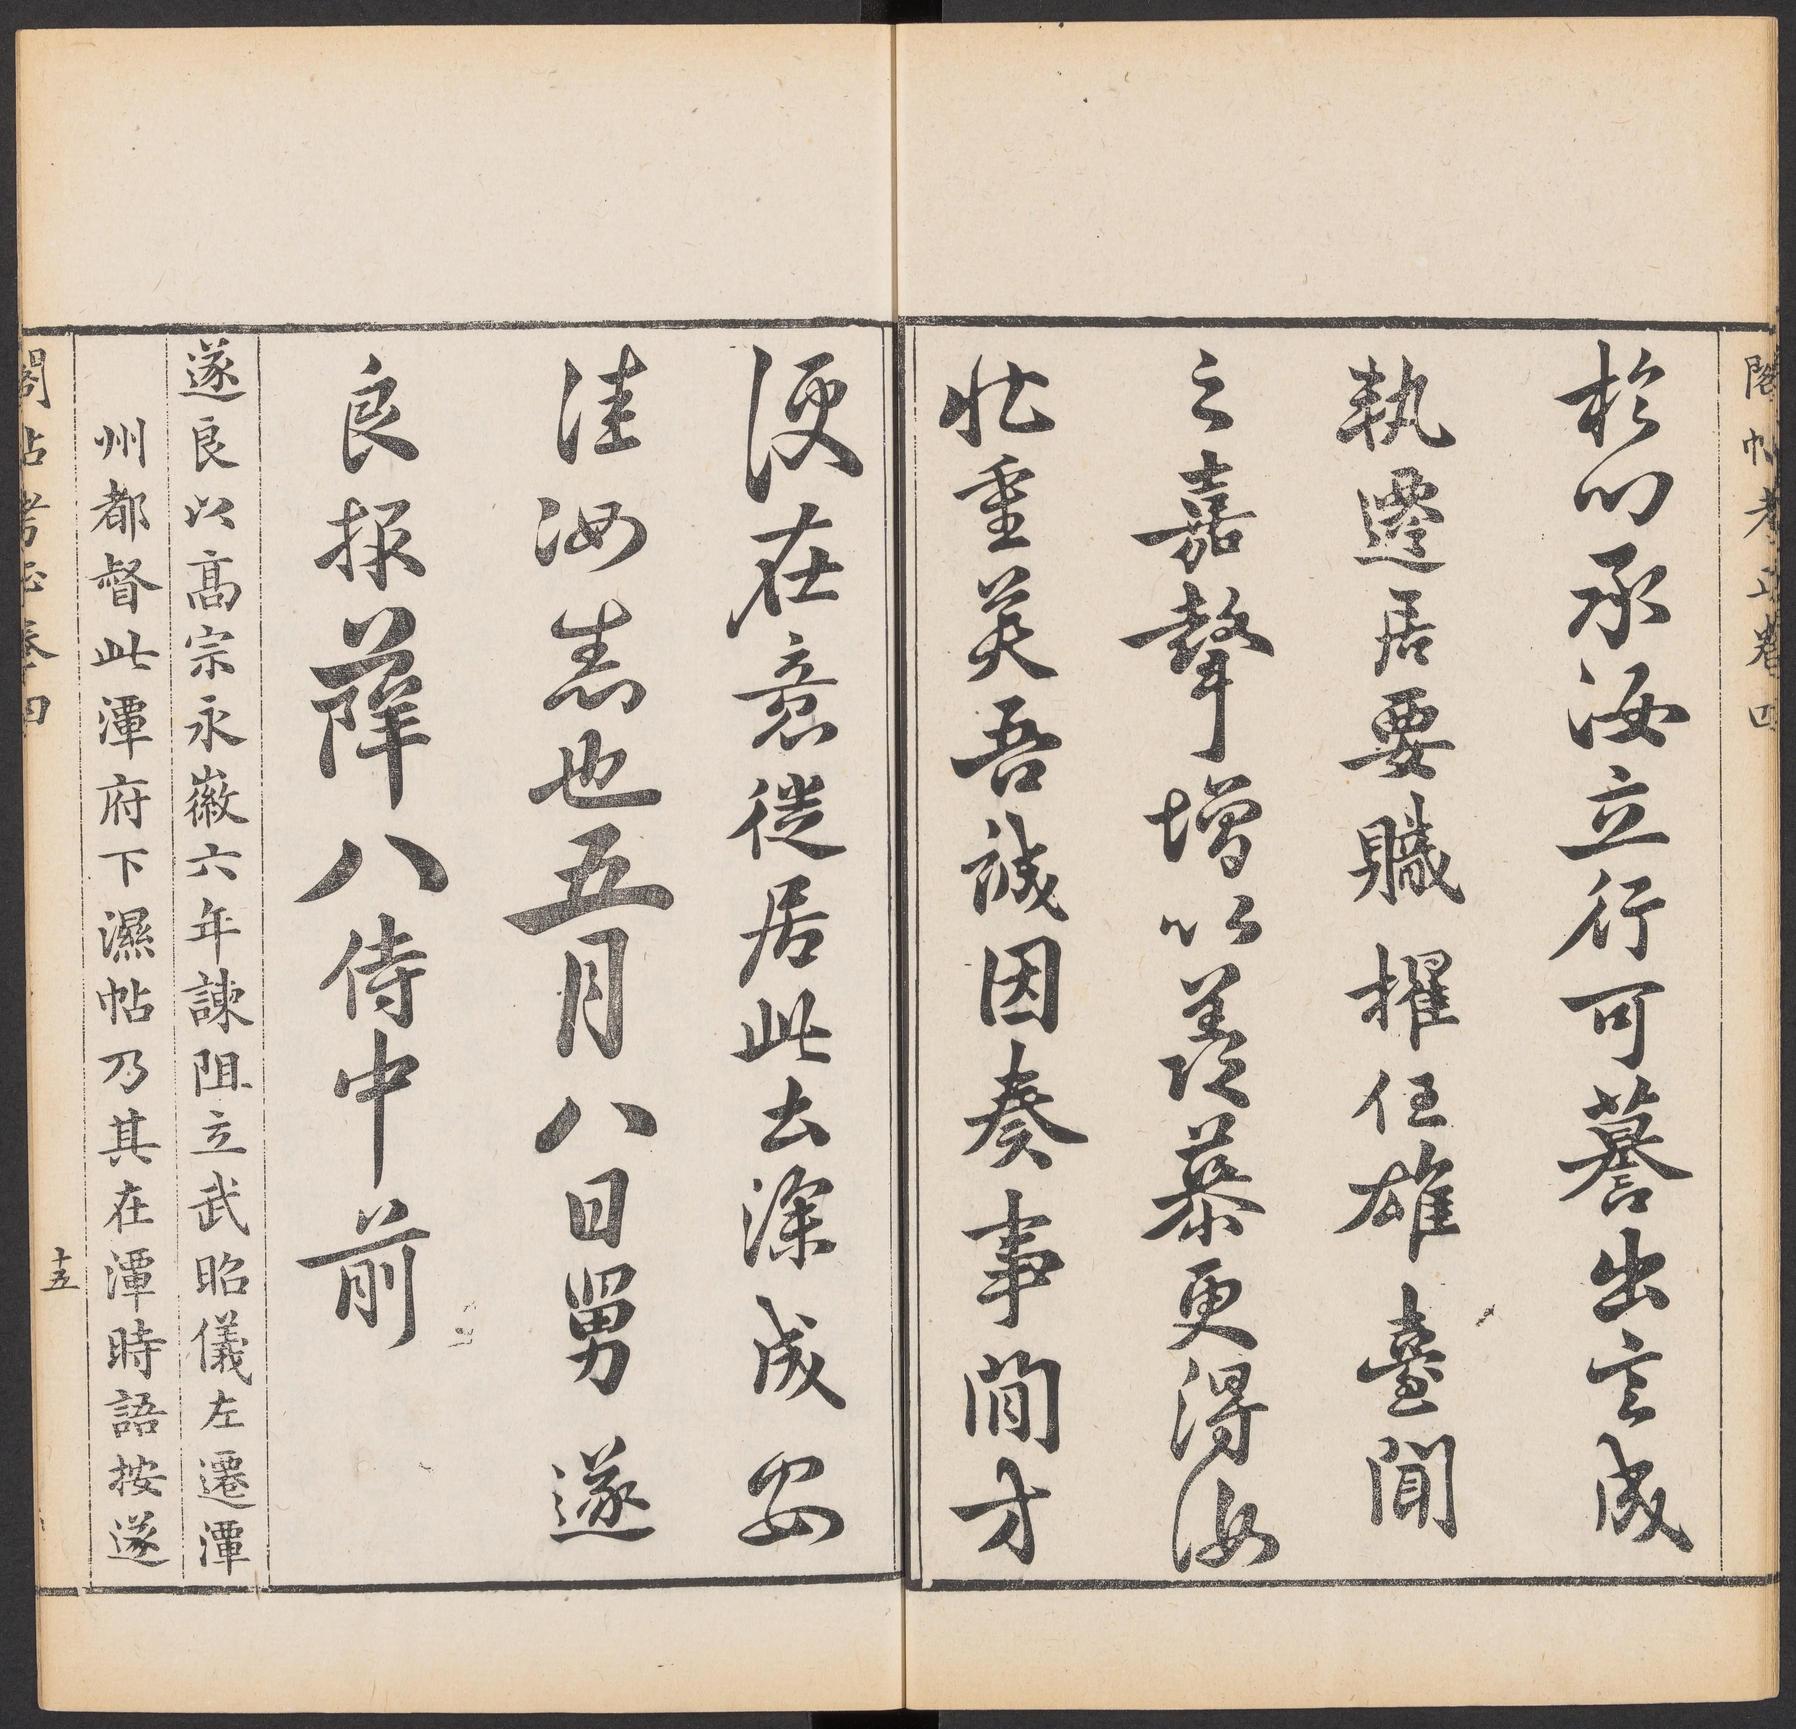 閣帖考正卷四
於心承汝立行可謩出言成
執遷居要職擢任雄臺聞
之嘉聲增以羨慕更得汝
壯重美吾誠因奏事間才
便在意從居此去深成安
佳汝悉也五月八日舅遂
良報薛八侍中前
遂良以高宗永徽六年諫阻立武昭儀左遷潭
州都督此潭府下濕帖乃其在潭時語按遂
閣帖考正卷四
十五